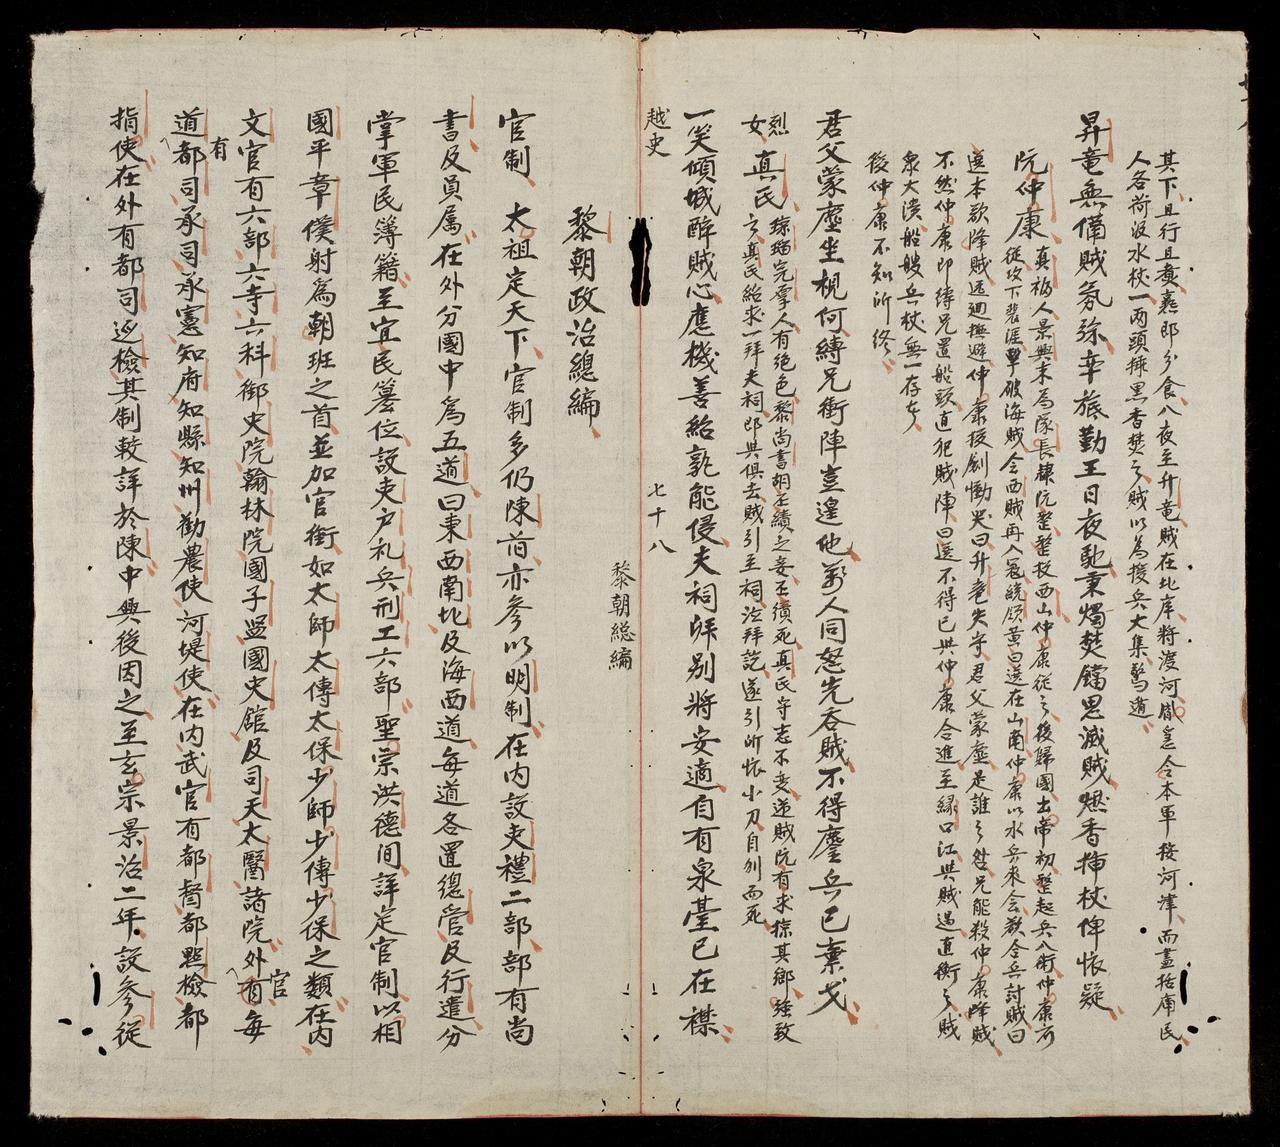 其下且行且爨爇即分食八夜至升竜賊在北岸將渡河臧鸞令本軍發河津而盡括庯民
人各荷汲水杖一两頭揷黑香焚之賊以為援兵大集驚遁
昇竜無備賊氛強辛旅勤王日夜馳秉燭焚鐺思滅賊燃香揷杖俾怀疑
阮仲康真祐人景興末為隊長隸阮整整投西山仲康從之後歸國出帝初整起兵入衛仲康亦
從攻下裴涯擊破海賊令西賊再入冦皖領黃曰選在山南仲康以水兵來会欲合兵討賊曰
選本欲降賊遲廻撫避仲康拔劍慟哭曰升竜失守君父蒙塵是誰之咎兄能殺仲康降賊
不然仲康即縛兄置船頭直犯賊陣曰選不得已與仲康合進至緑口江與賊遇直衝之賊
衆大潰船艘兵杖無一存者
後仲康不知所終
君父蒙塵坐視何縛兄衝陣豈遑他萬人同怒先吞賊不得鏖兵已棄戈
烈女真氏瓊瑠完㝈人有絕色黎尚書胡丕績之妾丕績死真氏守志不变逆賊阮有求掠其鄉強致
之真氏紿求一拜夫祠即與俱去賊引至祠泣拜訖遂引所怀小刀自刎而死
一笑傾城醉賊心應機善紿孰能侵夫祠拜别將安適自有泉臺已在襟
越史
七十八
黎朝總編
黎朝政治總編
官制 太祖定天下官制多仍陳首亦參以明制在内設吏禮二部部有尚
書及員属在外分國中為五道曰東西南北及海西道每道各置總管及行遣分
掌軍民簿籍至宜民簒位設吏户礼兵刑工六部聖宗洪德间詳定官制以相
國平章僕射為朝班之首並加官銜如太師太傅太保少師少傅少保之類在内
文官有六部六寺六科御史院翰林院國子監國史館及司天太醫諸院外官有每
道有都司承司承憲知府知縣知州勸農使河堤使在内武官有都督都㸃檢都
指使在外有都司廵檢其制較詳於陳中興後因之至玄宗景治二年設參從